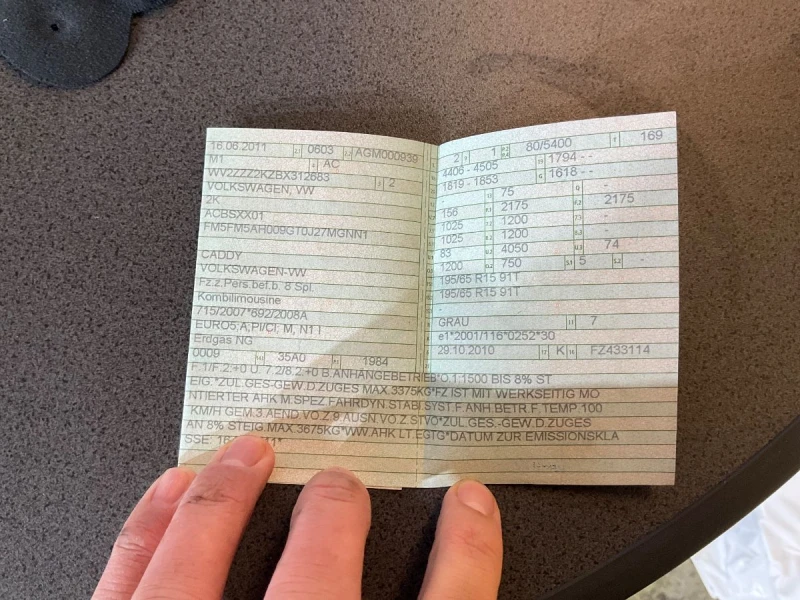 16.06.2011 0603 AGM000939
M1 AC
WV2ZZZ2KZBX312683 2
VOLKSWAGEN, VW
2K
ACBSXX01
FM5FM5AH009GT0J27MGNN1
CADDY
VOLKSWAGEN-VW
Fz.z.Pers.bef.b. 8 Spl.
Kombilimousine
715/2007*692/2008A
EURO5;A;PI/CI; M, N1 I
Erdgas NG
0009 35A0 1984
2 1 80/5400 169
4406 - 4505 1794 - -
1819 - 1853 1618 - -
75 -
156 2175 2175
1025 1200 -
1025 1200 -
83 4050 74
1200 750 5 -
195/65 R15 91T
195/65 R15 91T
GRAU 7
e1*2001/116*0252*30
29.10.2010 K FZ433114
F.1/F.2:+0 U. 7.2/8.2:+0 B.ANHÄNGEBETRIEB*O.1:1500 BIS 8% ST
EIG.*ZUL.GES-GEW.D.ZUGES MAX.3375KG*FZ IST MIT WERKSEITIG MO
NTIERTER AHK M.SPEZ FAHRDYN.STABI SYST.F.ANH.BETR.F.TEMP 100
KM/H GEM.3.AEND VO.Z.9.AUSN.VO.Z.STVO*ZUL.GES.-GEW.D.ZUGES
AN 8% STEIG.MAX.3675KG*WW.AHK LT.EGTG*DATUM ZUR EMISSIONSKLA
SSE: